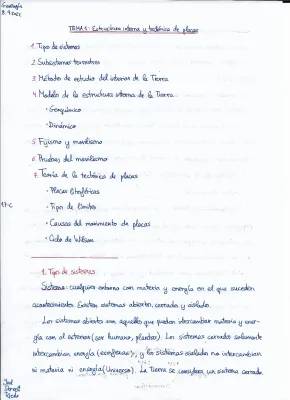 Geología
TEMA 1: Estructura interna y tectónica de placas
1. Tipo de sistemas
2. Subsistemas terrestres
3. Métodos de estudio del interior de la Tierra
4. Modelo de la estructura interna de la Tierra
· Geoquímico
· Dinámico
5. Fijismo y movilismo
6. Pruebas del movilismo
7. Teoría de la tectónica de placas
· Placas litosféricas
· Tipo de límites
· Causas del movimiento de placas
· Ciclo de Wilson
1. Tipo de sistemas
Sistema: cualquier entorno con materia y energía en el que suceden
acontecimientos. Existen sistemas abiertos, cerrados y aislado.
Los sistemas abiertos son aquellos que pueden intercambiar materia y ener-
gía con el exterior (ser humano, plantas). Los sistemas cerrados solamente
intercambian energía, y los sistemas aislados no intercambian
ni materia ni energía (Universo). La Tierra se considera un sistema cerrado